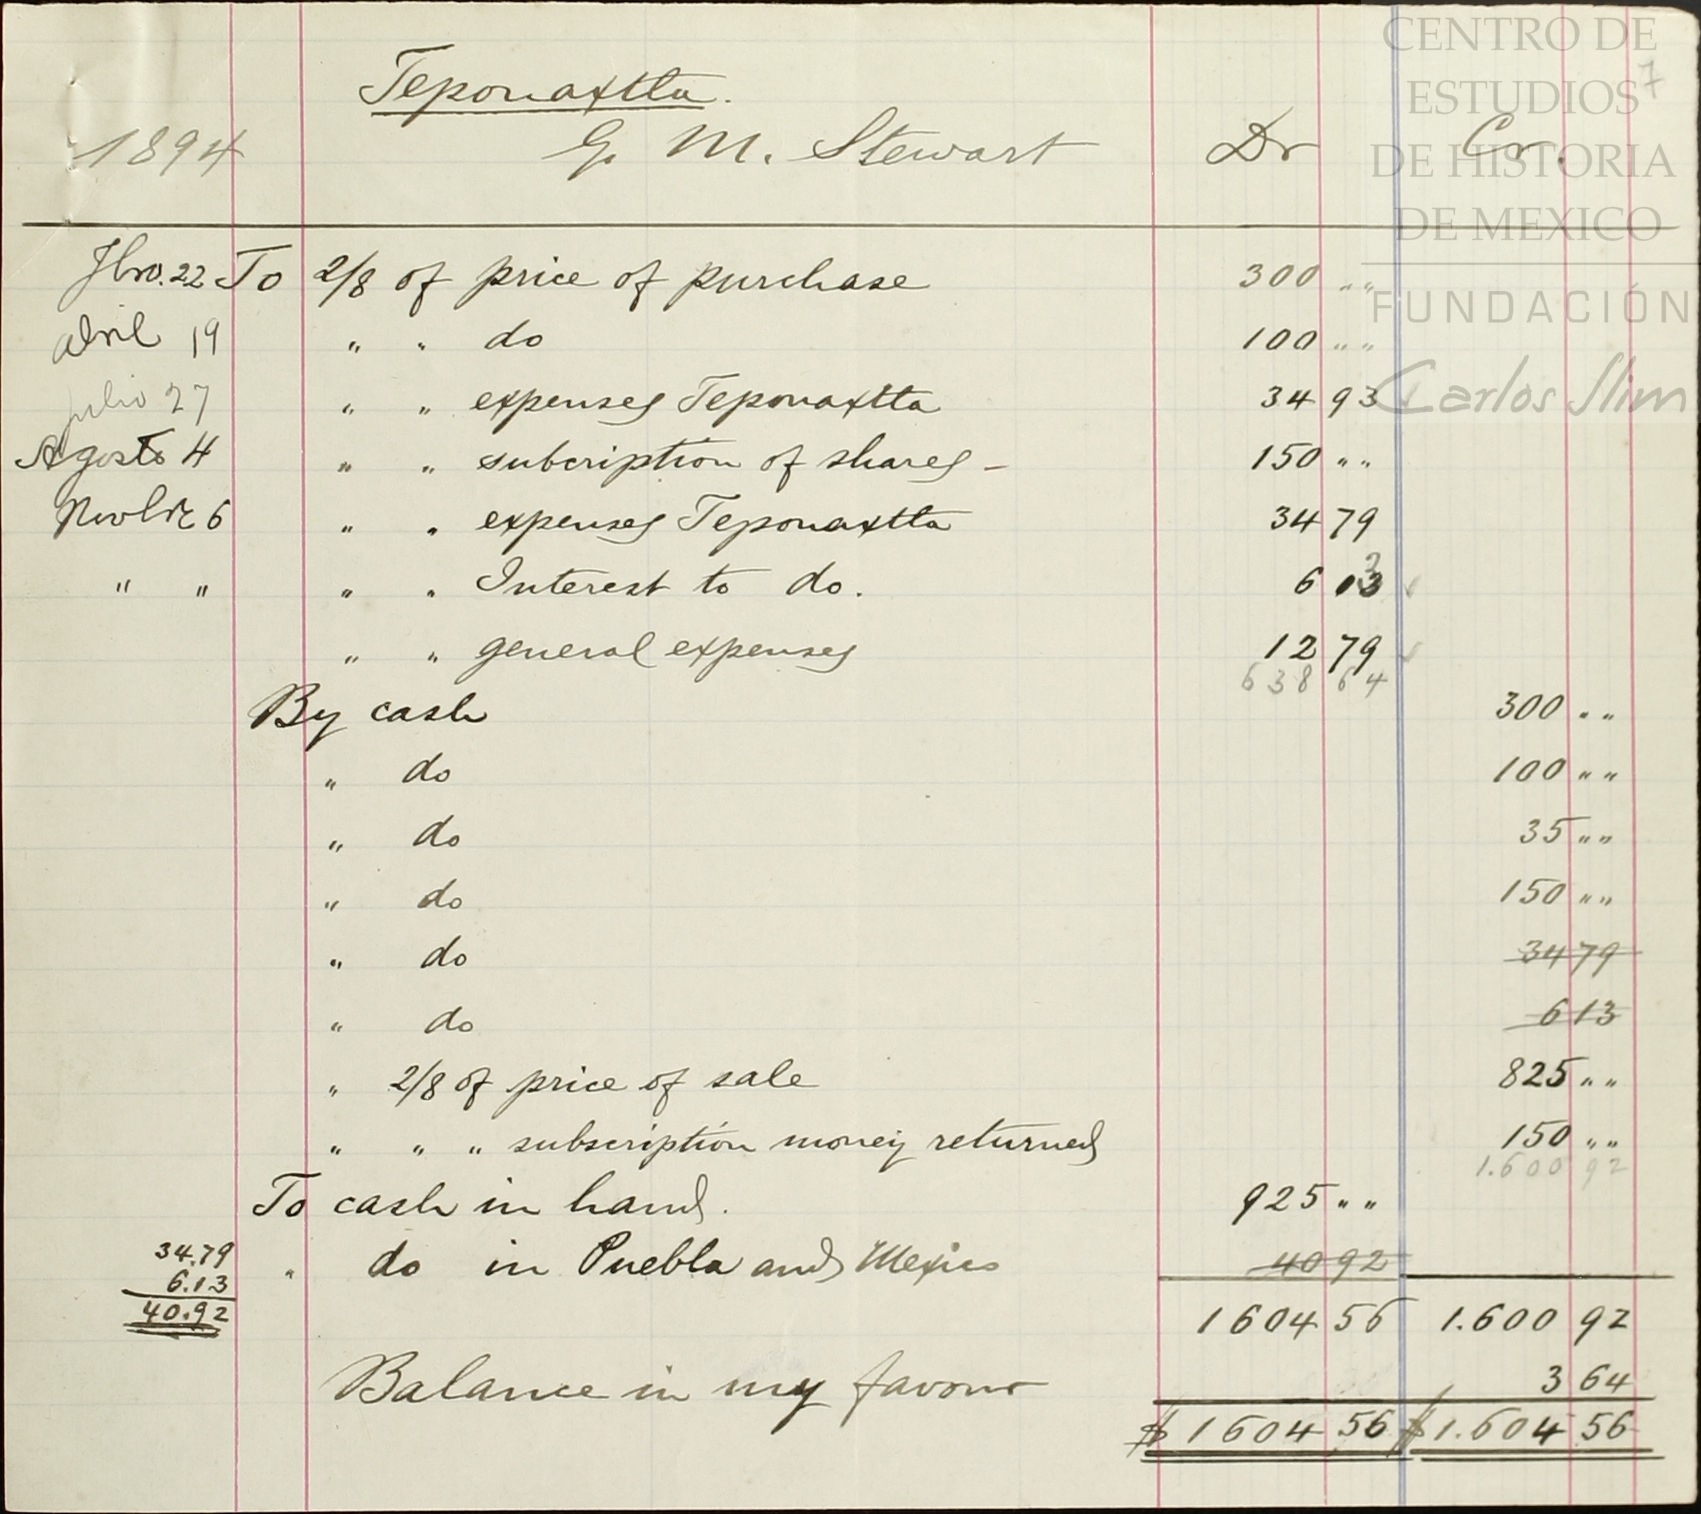 CENTRO DE
ESTUDIOS 7
DE HISTORIA
DE MEXICO
FUNDACIÓN
Carlos Slim
Teponaxtla.
1894 G. M. Stewart Dr Cr.
Fbro. 22 To 2/8 of price of purchase 300 " "
Abril 19 " " do 100 " "
julio 27 " " expenses Teponaxtla 34 93
Agosto 4 " " subcription of shares - 150 " "
Novbre 6 " " expenses Teponaxtla 34 79
" " " " Interest to do. 6 13
" " general expenses 12 79
638 64
By cash 300 " "
" do 100 " "
" do 35 " "
" do 150 " "
" do 34 79
" do 6 13
" 2/8 of price of sale 825 " "
" " " subscription money returned 150 " "
1.600 92
To cash in hand. 925 " "
" do in Puebla and Mexico 40 92
34.79
6.13
40.92
1604 56 1.600 92
Balance in my favour 3 64
$ 1604 56 $ 1.604 56